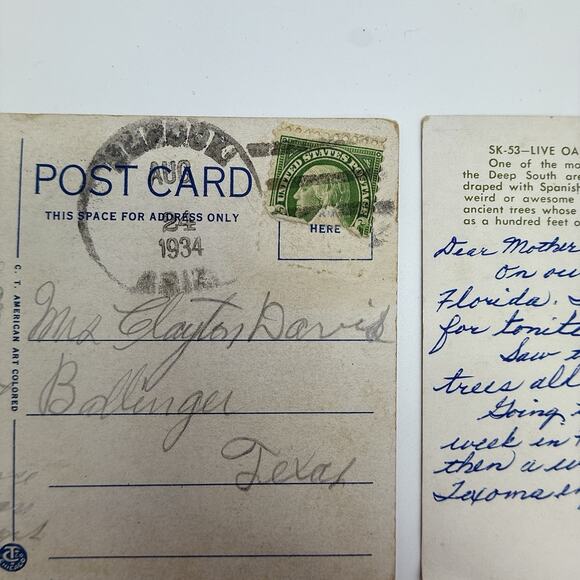 AUG
24
1934
POST CARD
THIS SPACE FOR ADDRESS ONLY
UNITED STATES POSTAGE
HERE
C. T. AMERICAN ART COLORED
Mrs Clayton Davis
Ballinger
Texas
CHICAGO
SK-53—LIVE OA
One of the ma
the Deep South are
draped with Spanish
weird or awesome
ancient trees whose
as a hundred feet a
Dear Mother
On our
Florida.
for tonite
Saw t
trees all
Going t
week in
then a w
Texoma